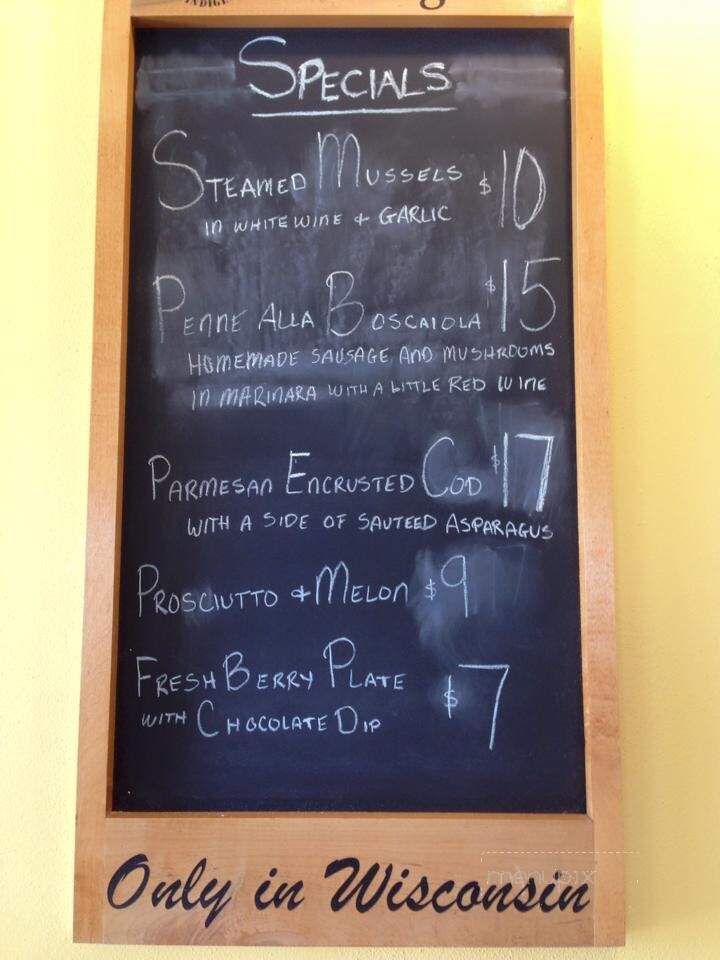 SPECIALS
STEAMED MUSSELS $10
IN WHITE WINE + GARLIC
PENNE ALLA BOSCAIOLA $15
HOMEMADE SAUSAGE AND MUSHROOMS
IN MARINARA WITH A LITTLE RED WINE
PARMESAN ENCRUSTED COD $17
WITH A SIDE OF SAUTEED ASPARAGUS
PROSCIUTTO + MELON $9
FRESH BERRY PLATE
WITH CHOCOLATE DIP $7
Only in Wisconsin